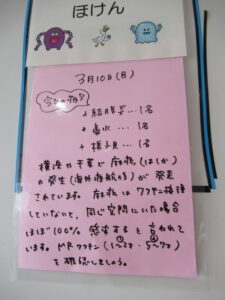 ほけん
3月10日(日)
今日の病欠
+ 結膜炎…1名
+ 鼻水 … 1名
+ 様子見…1名
横浜や千葉で麻疹(はしか)
の発生(海外渡航の)が 発表
されています。麻疹は ワクチン接種
していないと、同じ空間にいた場合
ほぼ100% 感染すると 言われて
います。MRワクチン(1〜2才・5〜7才)
① ②
を確認しましょう。